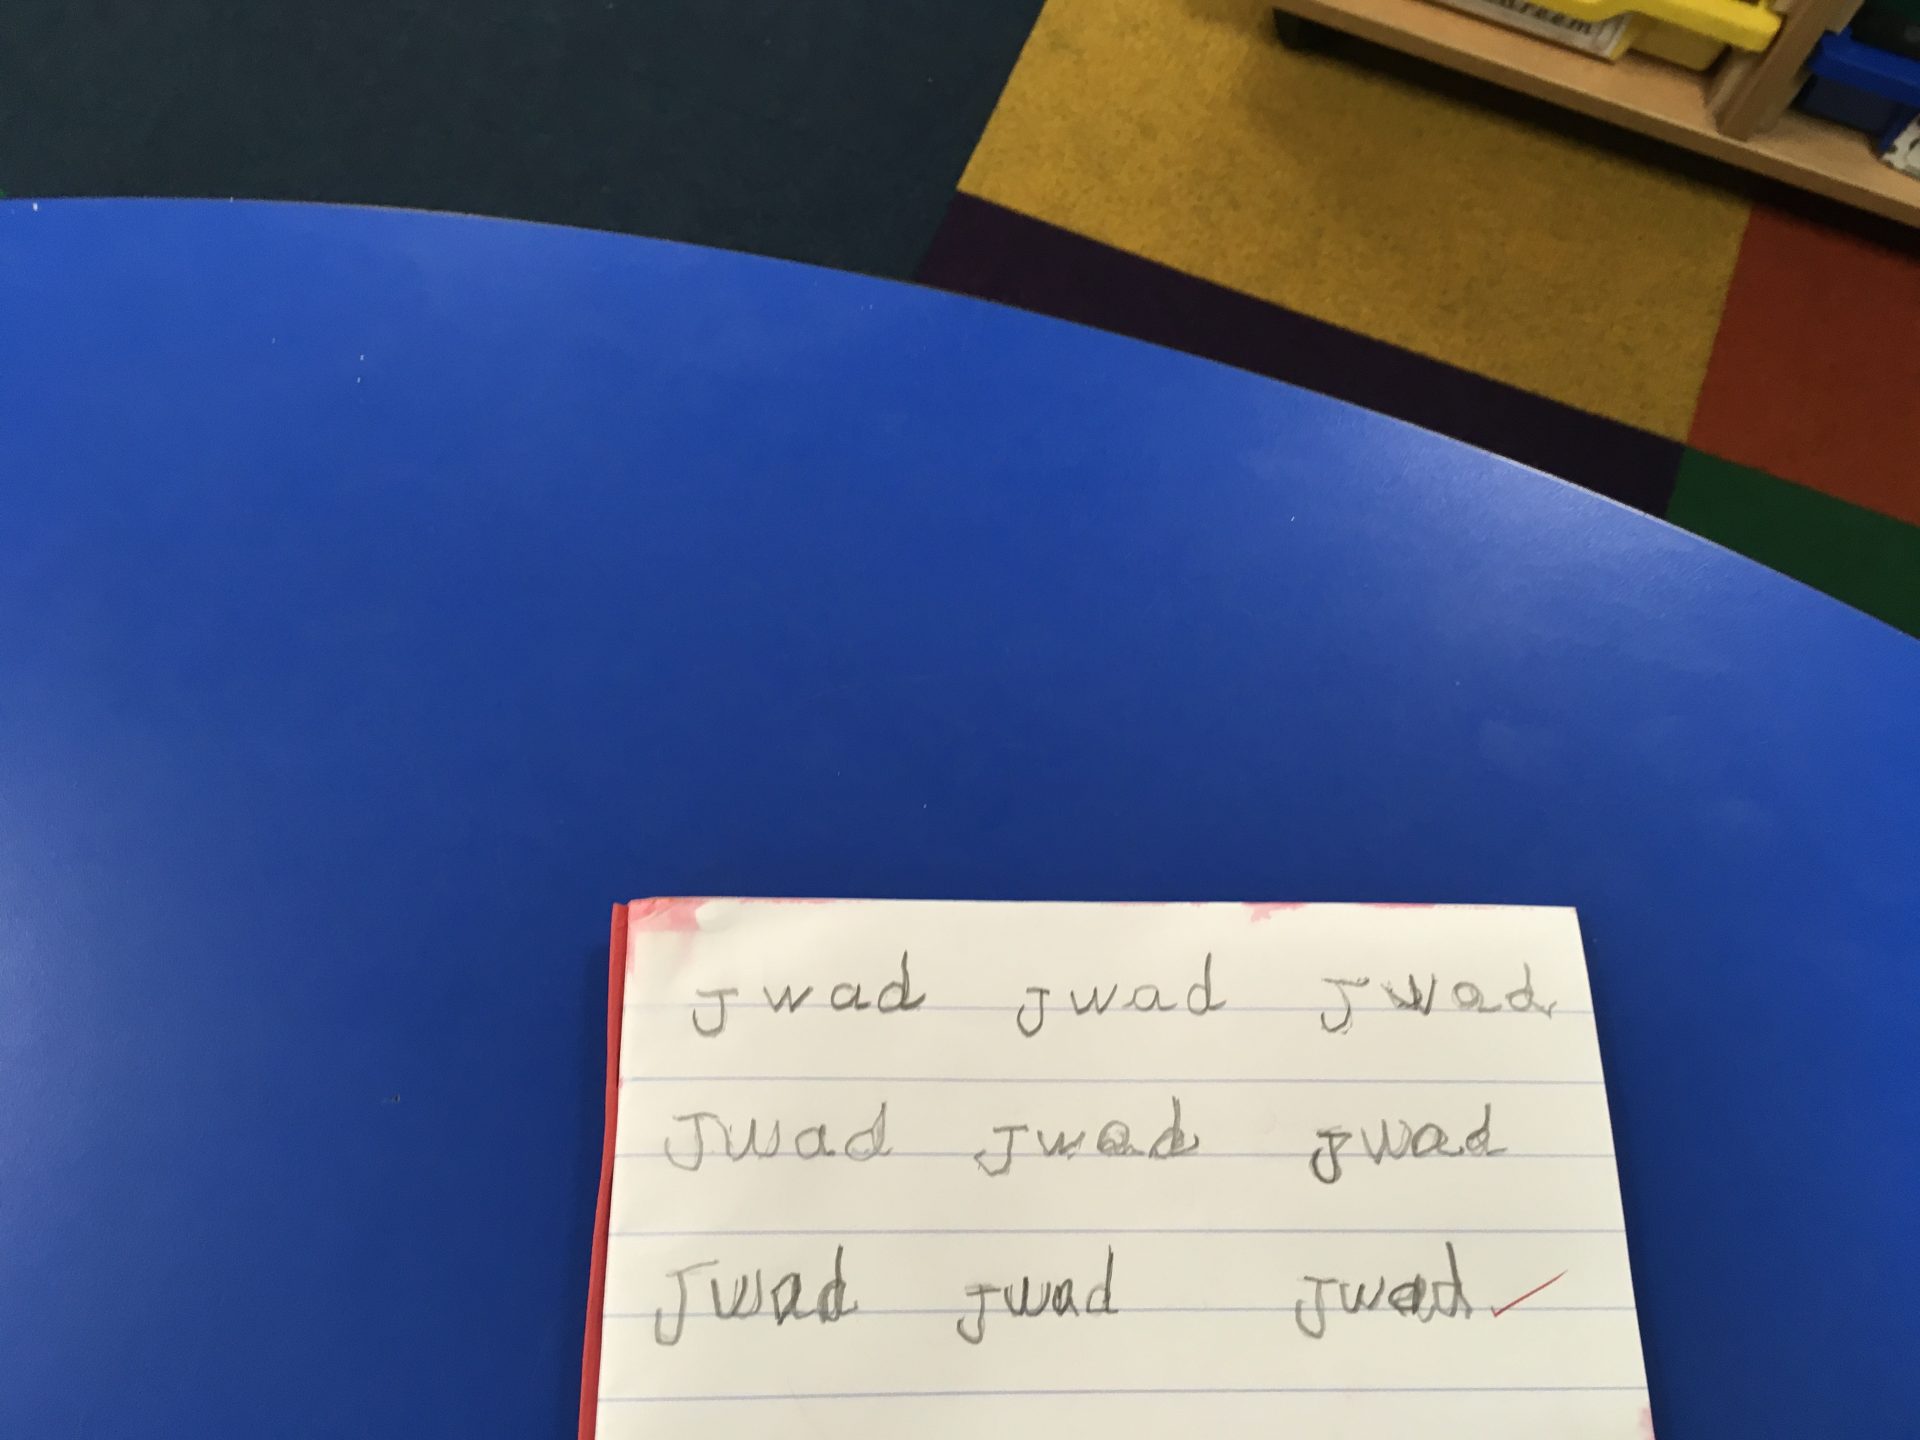 Jwad Jwad Jwad
Jwad Jwad Jwad
Jwad Jwad Jwad